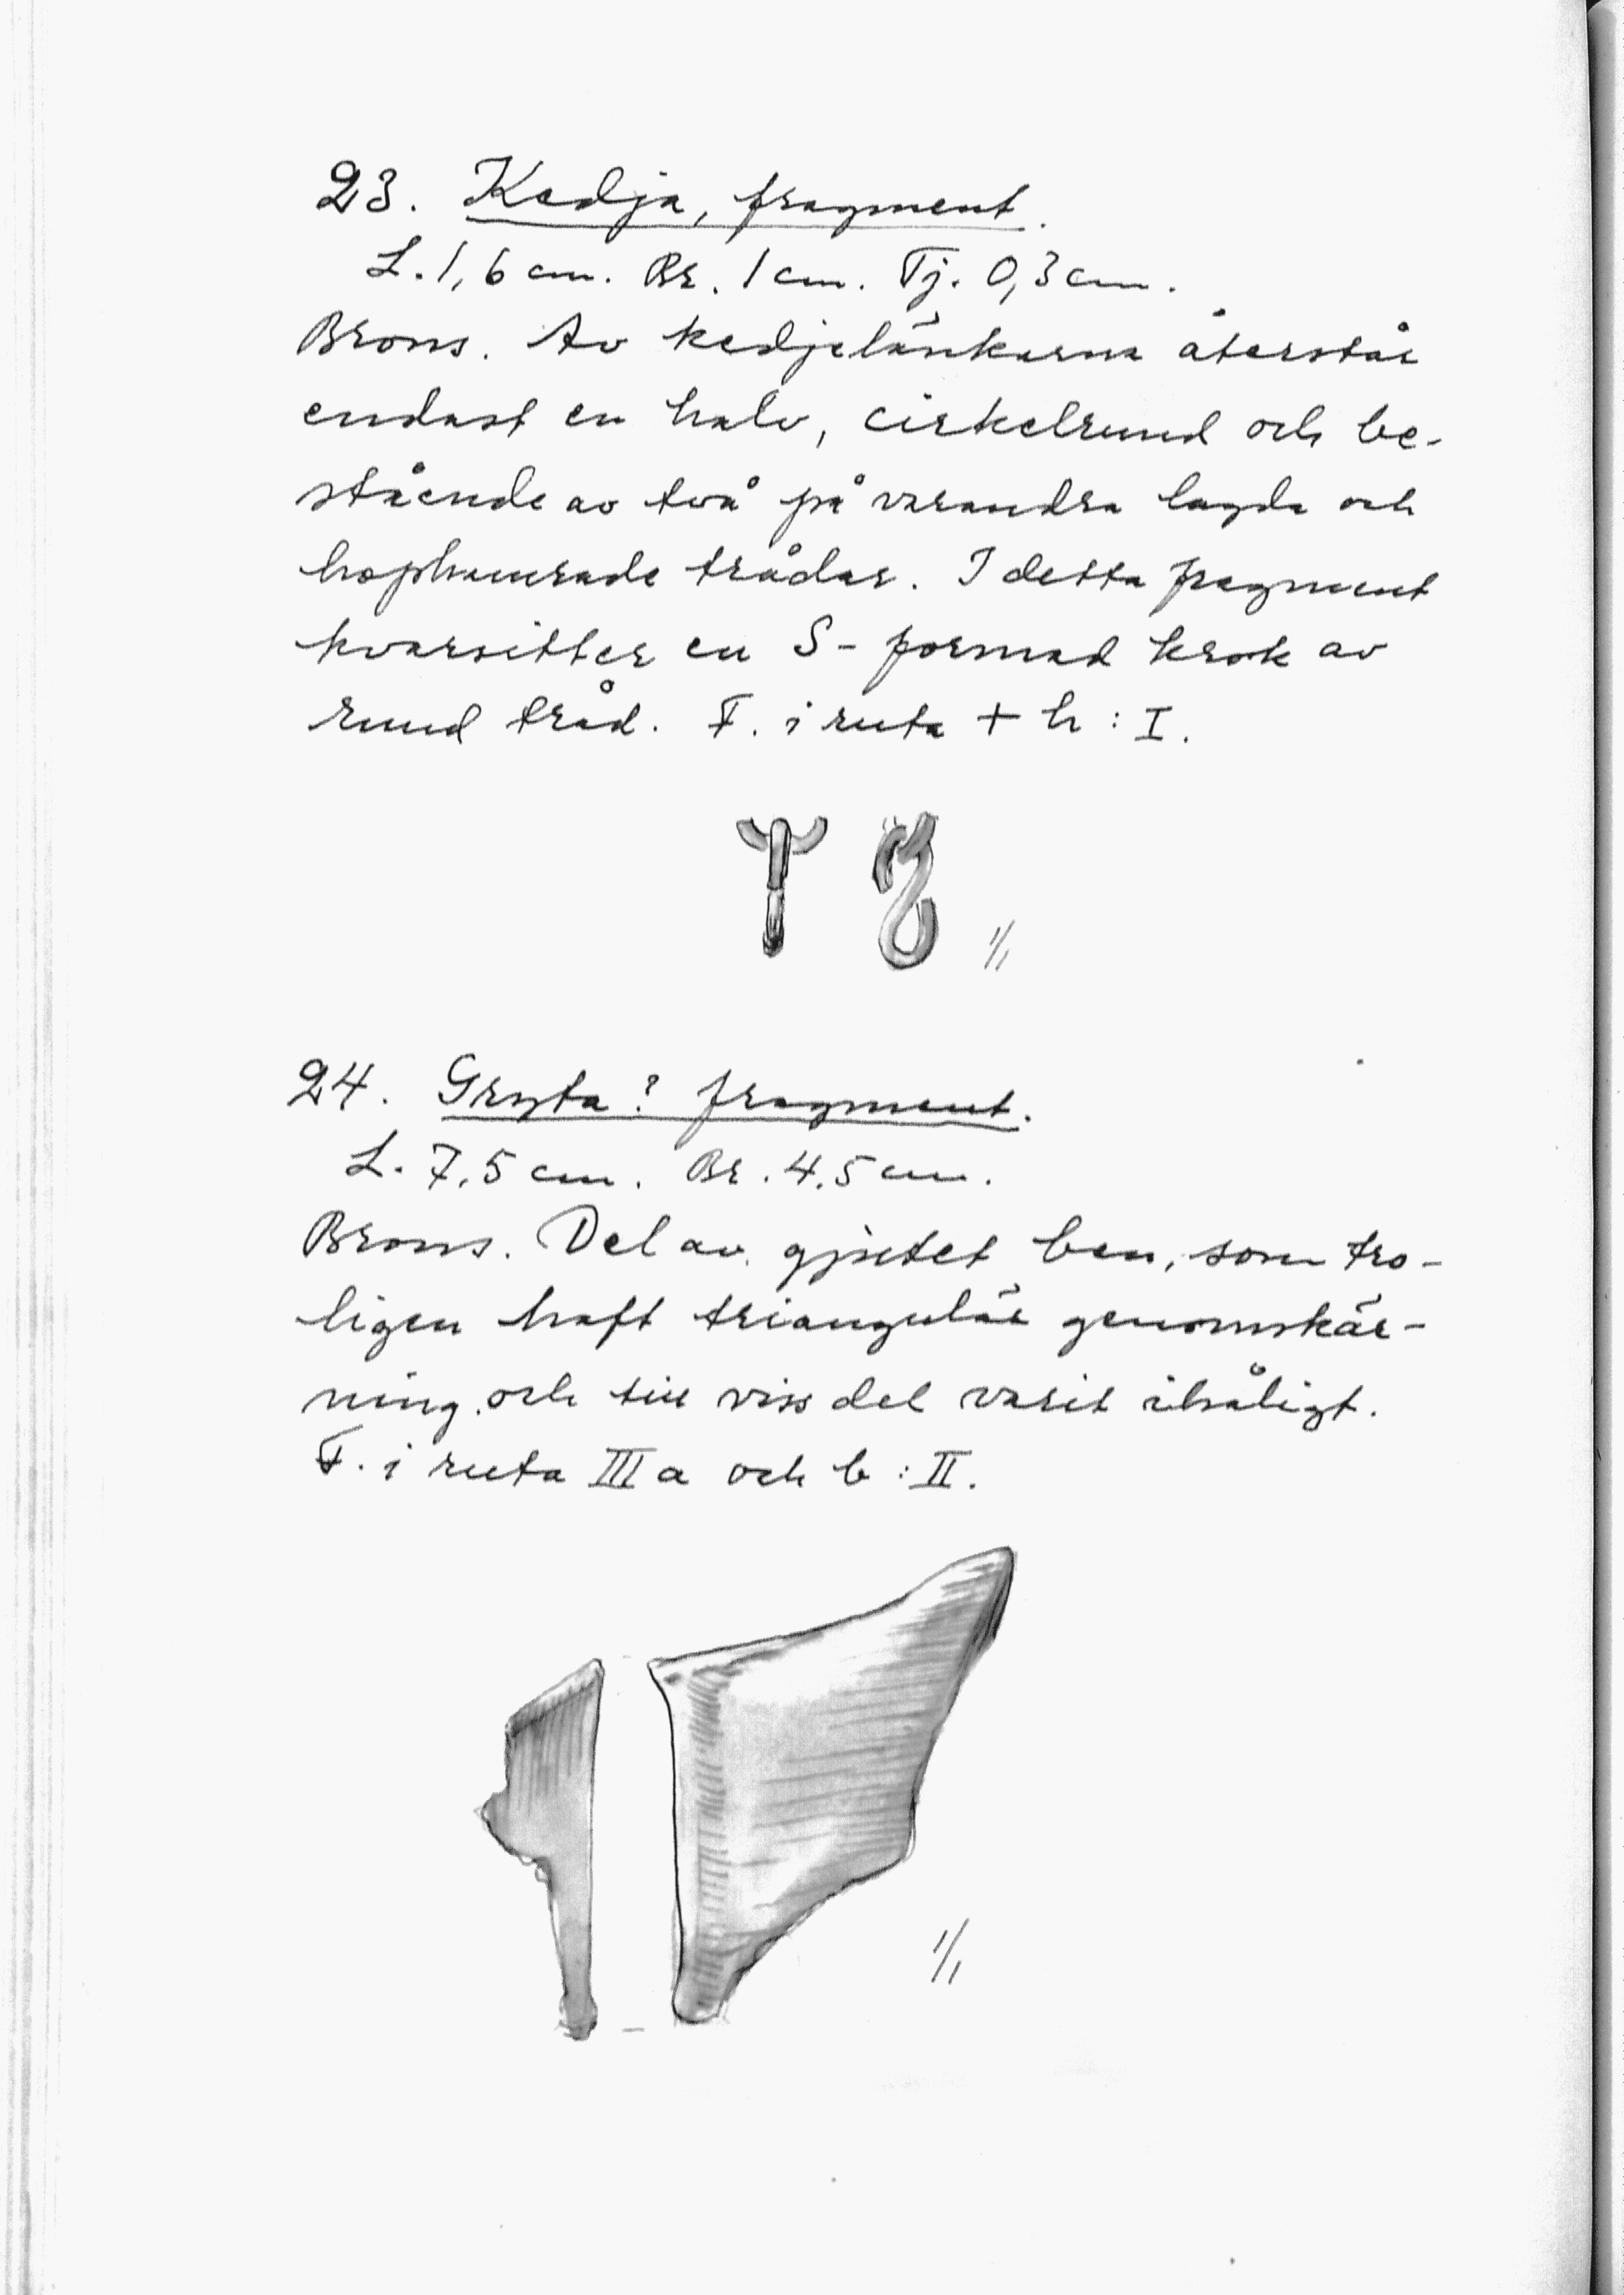 23. Kedja, fragment.
L. 1,6 cm. Br. 1 cm. Tj. 0,3 cm.
Brons. Av kedjelänkarna återstår
endast en halv, cirkelrund och be-
stående av två på varandra lagda och
hophamrade trådar. I detta fragment
kvarsitter en S-formad krok av
rund tråd. F. i ruta + h : I.
1/1
24. Gryta? fragment.
L. 7,5 cm. Br. 4,5 cm.
Brons. Del av gjutet ben, som tro-
ligen haft triangulär genomskär-
ning och till viss del varit ihåligt.
F. i ruta III a och b : II.
1/1